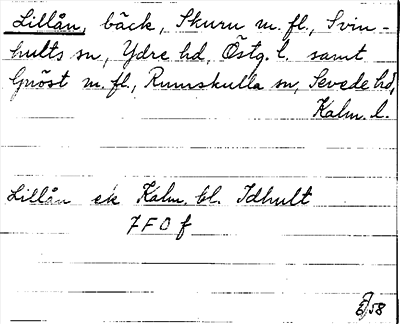 Lillån, bäck, Skuru m. fl., Svin-
hults sn, Ydre hd, Östg. l. samt
Gnöst m. fl., Rumskulla sn, Sevede hd,
Kalm. l.
Lillån ek Kalm. bl. Idhult
7 F O f
58